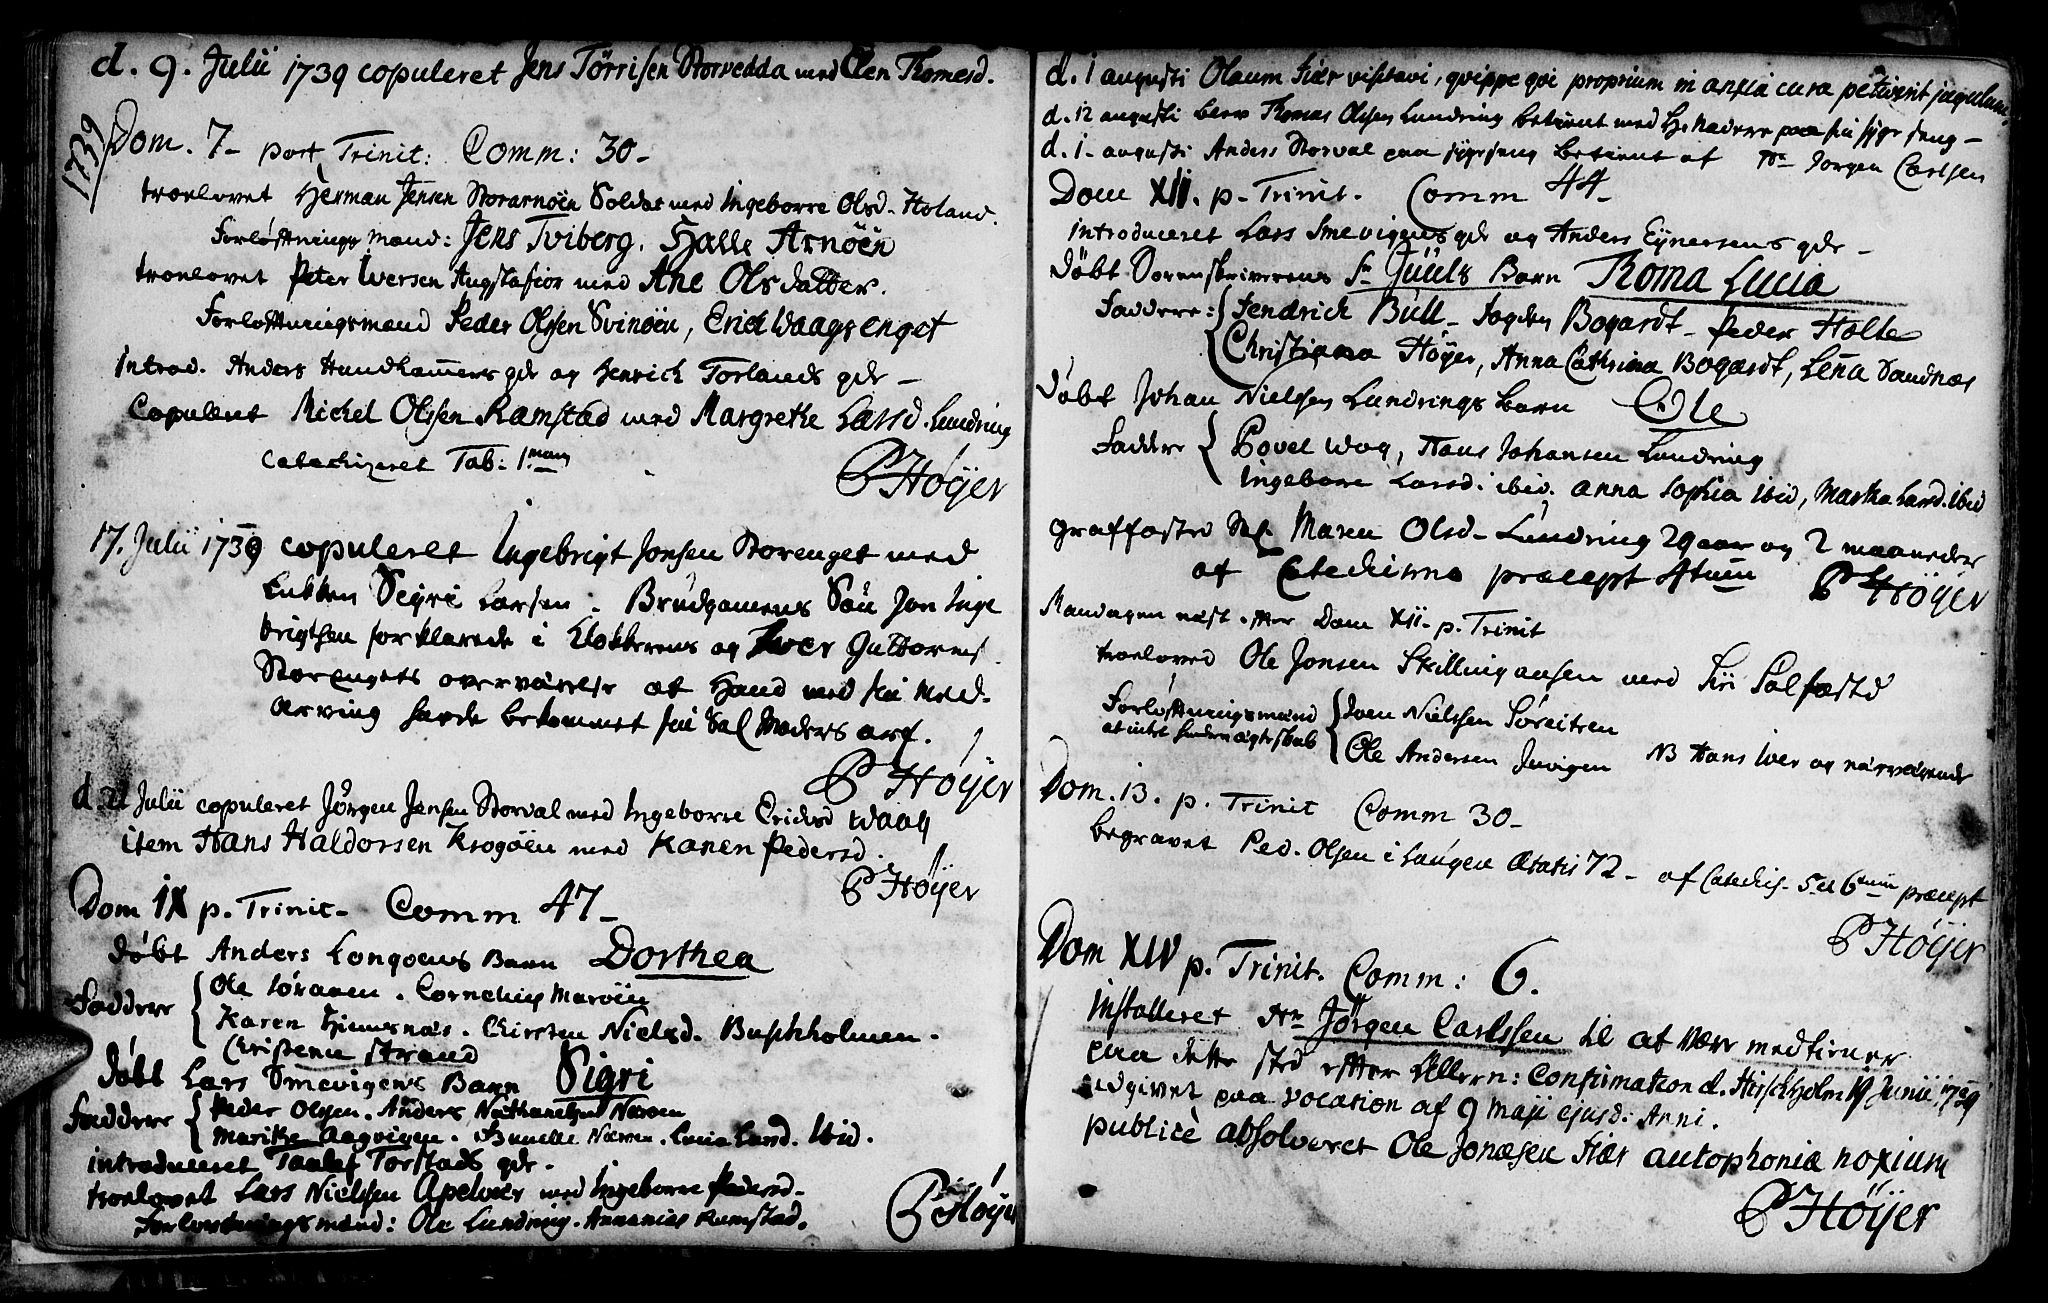 d. 9. Julii 1739 copuleret Jens Törrisen Storvedda med Elen Thomesd.
1739
Dom. 7- post Trinit: Comm: 30-
troelovet Herman Jensen Storarnöen Soldat med Ingeborre Olsd. Holand.
Forlöftnings Mænd: Jens Tviberg. Halle Arnöen
troelovet Peter Iversen Augstafior med Ane Olsdatter.
Forloftningsmænd Peder Olssen Svinöen, Erich Waagsenget
Introd. Anders Hundhammers qde og Henrich Torlands qde -
Copuleret Michel Olssen Ramstad med Margrethe Larsd. Lundring
Catechizeret Tab: 1mam
P Höyer
17. Julii 1739 copuleret Ingebrigt Jonsen Storenget med
Enkken Seyri Larsen. Brudgomens Sön Jon Inge
brigtsen forklarede i Klokkerens og Iver Guttorms
Storengets overværelse at Hand med sin Med-
Arving hafde bekommet sin Sal Moders arf.
P Höyer
d. 21 Julii copuleret Jörgen Jensen Storval med Ingeborre Erichsd Waag
item Hans Haldorsen Krogöen med Karen Pedersd.
P Höyer
Dom IX p. Trinit- Comm 47-
döbt Anders Longöens Barn Dorthea
Faddere Ole Söraaen. Cornelius Maröen
Karen Finnesnæs. Chirsten Nielsd. Buskholmen.
Christence Strand
döbt Lars Smevigens Barn Sigri
Faddere Peder Olsen. Anders Nathanelsen Næren
Marithe Aagvigen. Brunelle Næren. Lucia Land. Ibid.
introduceret Taalef Torstads qde.
troelovet Lars Nielssen Apelvær med Ingeborre Pedersd-
Forlovtningsmænd: Ole Lundring. Annanias Ramstad.
P Höyer
d. 1 augusti Olaum Fiær visitavi, qvippe qvi proprium in anxia cura petiverit jugulum.
d. 12 augusti blev Thomas Olsen Lundring betient med H. Nadvere paa sin syge seng -
d. 1- augusti Anders Storval paa sygeseng betient af Hr Jorgen Carlsen
Dom XII. p. Trinit. Comm 44-
introduceret Lars Smevigens qde og Anders Eynersens qde -
döbt Sorenskriverens Sr Juuls Barn Thoma Lucia
Faddere: Hendrich Bull - Jogden Bogardt - Peder Holte
Christiana Höyer, Anna Cathrina Bogardt, Lena Sandnæs
döbt Johan Nielssen Lundrings barn Ole
Faddere Povel Wog, Hans Johansen Lundring
Ingeborre Larsd. ibid. anna Sophia ibid, Martha Larsd. ibid
Graffæsted Sal. Maren Olsd- Lundring 29 aar og 2 maaneder
af Catechismo præcept 4tum P Höyer
Mandagen næst efter Dom XII. p. Trinit
troeloved Ole Jonsen Skillingaasen med Siri Salfæstd
Forlöftningsmænd Joen Nielssen Söreitren
at intet hindrer ægteskab Ole Andersen Juvigen NB Hans Iver og nærværende
Dom. 13. p. Trinit Comm 30-
begravet Ped. Olsen i Laugen Ætatis 72- af Catechis- 5 et 6tum præcept
P Höyer
Dom XIV p. Trinit. Comm: 6.
Installeret Hr Jörgen Carlssen til at være medtiener
paa dette sted efter Allern: Confirmation d. Hirschholm 19 Junii 1739
udgivet paa vocation af 9 Maji ejusd: Anni.
publicè absolveret Ole Jonæsen Fiær autophoniæ noxium
P Höyer